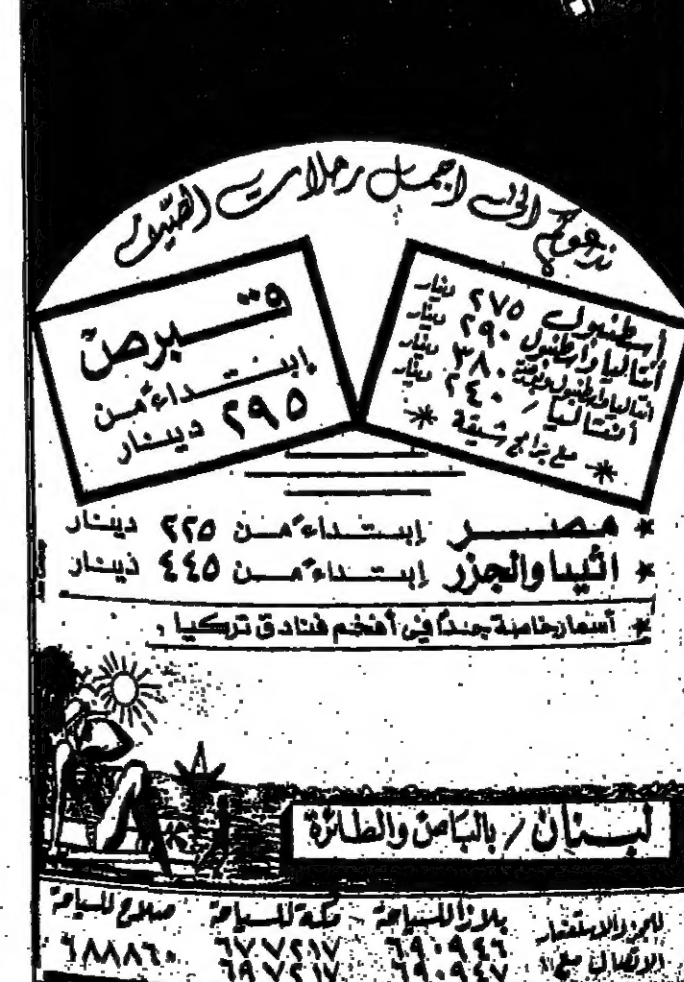 ندعوكم إلى اجمل رحلات الصيف
أسطنبول ٢٧٥ دينار
أنتاليا واسطنبول ٢٩٠ دينار
انتاليا واسطنبول ٣٨٠ دينار
أنتاليا / ٢٤٠ دينار
* مع برامج شيقة *
قبرص
إبتداءً من
٢٩٥ دينار
* مصر إبتداءً من ٢٢٥ دينار
* اثينا والجزر إبتداءً من ٤٤٥ دينار
* أسعار خاصة جداً في أفخم فنادق تركيا .
لبنان / بالباص والطائرة
للحجز والاستفسار
الاتصال مع :
بلازا للسياحة
٦٩٠٩٤٦
٦٩٠٩٤٧
مكة للسياحة
٦٧٧٢١٧
٦٩٧٢١٧
صلاح للسياحة
٦٨٨٨٦٠